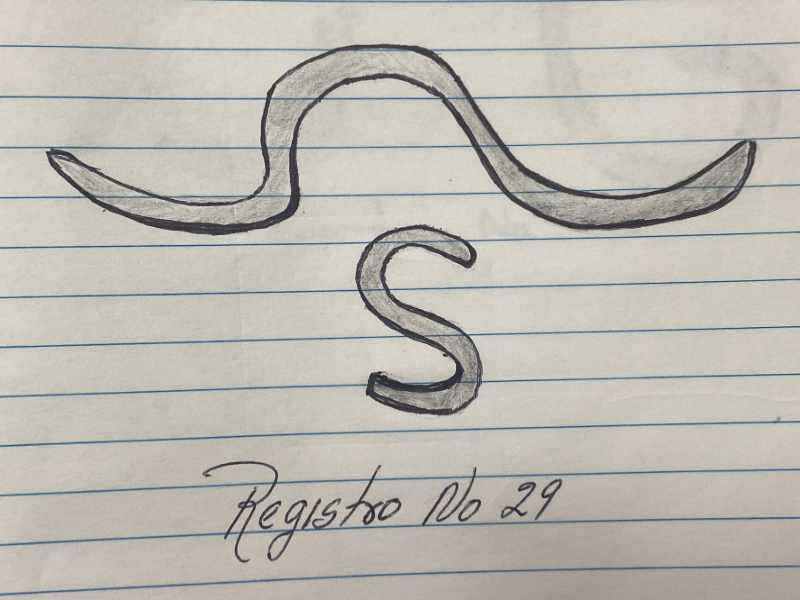 S
Registro No 29